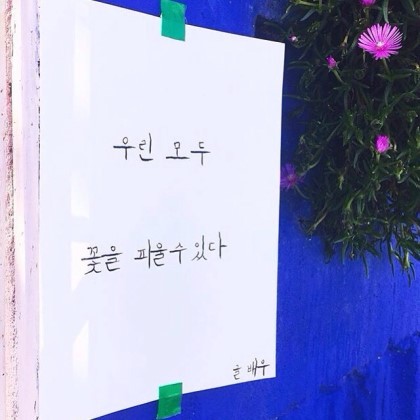 우린 모두
꽃을 피울수있다
글배우